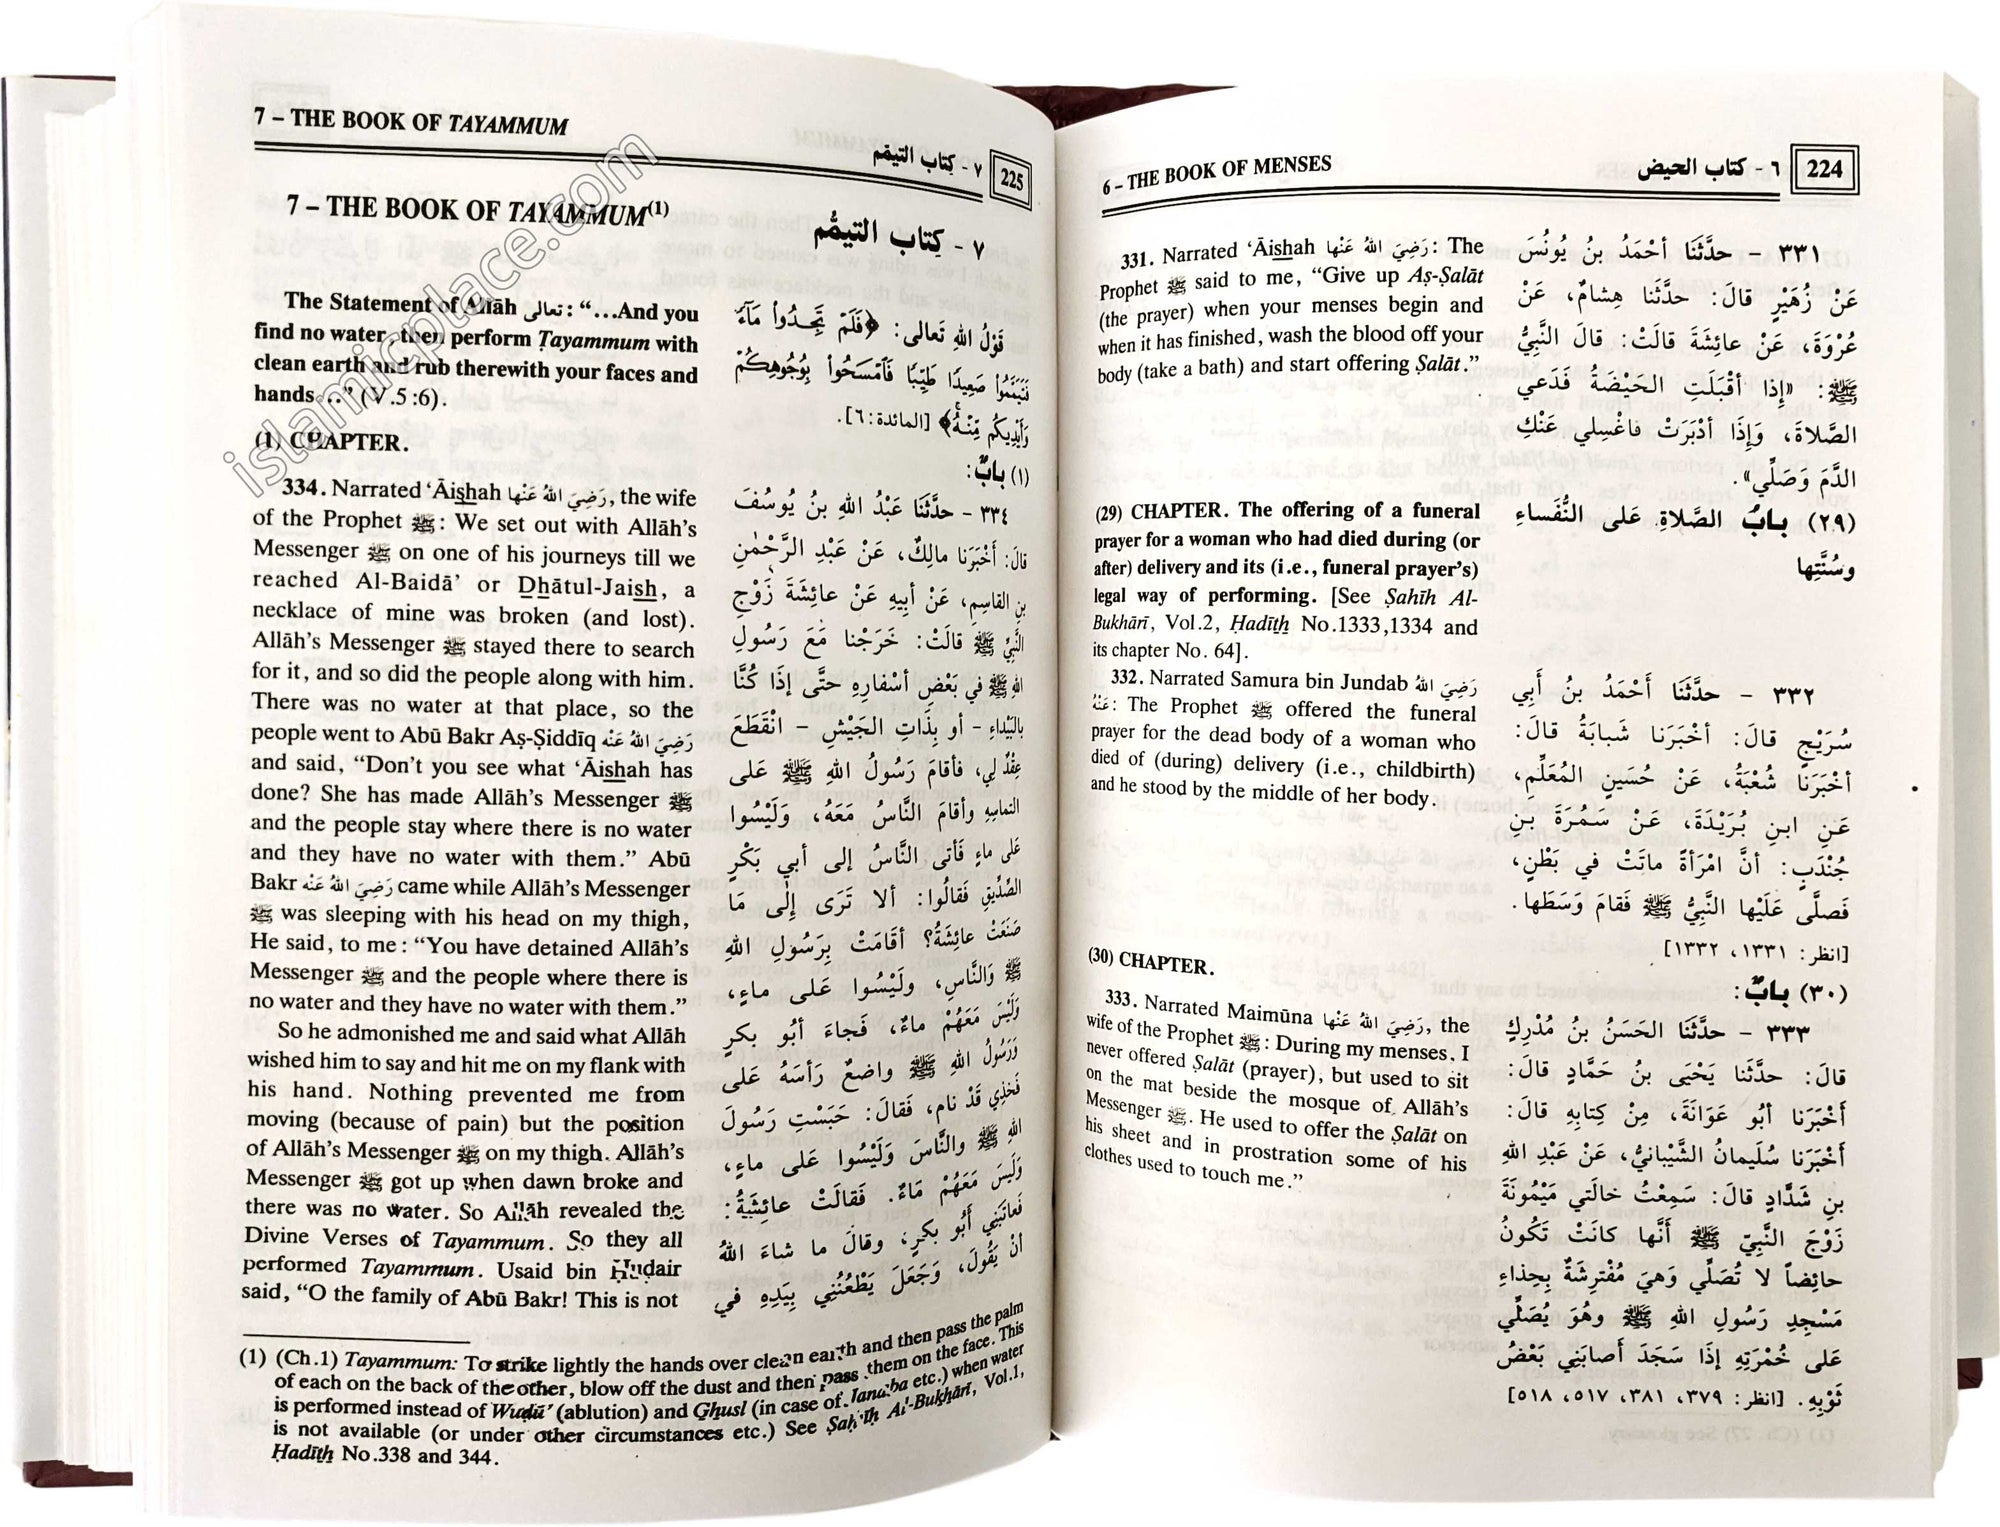 6 – THE BOOK OF MENSES
٦ - كتاب الحيض
224
331. Narrated ‘Āishah رَضِيَ اللهُ عَنْها: The
Prophet ﷺ said to me, “Give up Aṣ-Ṣalāt
(the prayer) when your menses begin and
when it has finished, wash the blood off your
body (take a bath) and start offering Ṣalāt.”
(29) CHAPTER. The offering of a funeral
prayer for a woman who had died during (or
after) delivery and its (i.e., funeral prayer’s)
legal way of performing. [See Ṣahīh Al-
Bukhārī, Vol.2, Ḥadīth No.1333,1334 and
its chapter No. 64].
332. Narrated Samura bin Jundab رَضِيَ اللهُ
عَنْهُ: The Prophet ﷺ offered the funeral
prayer for the dead body of a woman who
died of (during) delivery (i.e., childbirth)
and he stood by the middle of her body.
(30) CHAPTER.
333. Narrated Maimūna رَضِيَ اللهُ عَنْها, the
wife of the Prophet ﷺ: During my menses. I
never offered Ṣalāt (prayer), but used to sit
on the mat beside the mosque of Allāh’s
Messenger ﷺ. He used to offer the Ṣalāt on
his sheet and in prostration some of his
clothes used to touch me.”
٣٣١ - حدَّثَنَا أحْمَدُ بنُ يُونُسَ
عَنْ زُهَيْرٍ قالَ: حدَّثَنَا هِشامٌ، عَنْ
عُرْوَةَ، عَنْ عائِشَةَ قالَتْ: قالَ النَّبِيُّ
ﷺ: «إذا أقْبَلَتِ الحَيْضَةُ فَدَعي
الصَّلاةَ، وَإِذَا أدْبَرَتْ فاغْسِلي عَنْكِ
الدَّمَ وَصَلِّي».
(٢٩) بابُ الصَّلاةِ عَلى النُّفَساءِ
وسُنَّتِها
٣٣٢ - حدَّثَنَا أَحْمَدُ بنُ أبِي
سُرَيْجٍ قالَ: أخْبَرَنا شَبابَةُ قالَ:
أخْبَرَنَا شُعْبَةُ، عَنْ حُسَينٍ المُعَلِّمِ،
عَنِ ابنِ بُرَيْدَةَ، عَنْ سَمُرَةَ بنِ
جُنْدَبٍ: أنَّ امْرَأةً ماتَتْ في بَطْنٍ،
فَصلَّى عَلَيْها النَّبيُّ ﷺ فَقامَ وَسَطَها.
[انظر: ١٣٣١، ١٣٣٢]
(٣٠) بابٌ:
٣٣٣ - حدَّثَنَا الحَسَنُ بنُ مُدْرِكٍ
قالَ: حدَّثَنا يَحْيَى بنُ حَمَّادٍ قالَ:
أَخْبَرَنا أبُو عَوَانَةَ، مِنْ كِتابِهِ قالَ:
أخْبَرَنا سُلَيمانُ الشَّيْبانيُّ، عَنْ عَبدِ اللهِ
بنِ شَدَّادٍ قالَ: سَمِعْتُ خالَتي مَيْمُونَةَ
زَوْجَ النَّبيِّ ﷺ أنَّها كانَتْ تَكُونُ
حائِضاً لا تُصَلِّي وَهيَ مُفْتَرِشَةٌ بِحِذاءِ
مَسْجِدِ رَسُولِ اللهِ ﷺ وهُوَ يُصَلِّي
عَلى خُمْرَتِهِ إذَا سَجَدَ أصَابَنِي بَعْضُ
ثَوْبِهِ. [انظر: ٣٧٩، ٣٨١، ٥١٧، ٥١٨]
7 – THE BOOK OF TAYAMMUM
٧ - كِتاب التيمّم
225
7 – THE BOOK OF TAYAMMUM(1)
The Statement of Allāh تعالى: “...And you
find no water, then perform Ṭayammum with
clean earth and rub therewith your faces and
hands...” (V.5:6).
(1) CHAPTER.
334. Narrated ‘Āishah رَضِيَ اللهُ عَنْها, the wife
of the Prophet ﷺ: We set out with Allāh’s
Messenger ﷺ on one of his journeys till we
reached Al-Baidā’ or Dhātul-Jaish, a
necklace of mine was broken (and lost).
Allāh’s Messenger ﷺ stayed there to search
for it, and so did the people along with him.
There was no water at that place, so the
people went to Abū Bakr Aṣ-Ṣiddīq رَضِيَ اللهُ عَنْهُ
and said, “Don’t you see what ‘Āishah has
done? She has made Allāh’s Messenger ﷺ
and the people stay where there is no water
and they have no water with them.” Abū
Bakr رَضِيَ اللهُ عَنْهُ came while Allāh’s Messenger
ﷺ was sleeping with his head on my thigh,
He said, to me: “You have detained Allāh’s
Messenger ﷺ and the people where there is
no water and they have no water with them.”
So he admonished me and said what Allāh
wished him to say and hit me on my flank with
his hand. Nothing prevented me from
moving (because of pain) but the position
of Allāh’s Messenger ﷺ on my thigh. Allāh’s
Messenger ﷺ got up when dawn broke and
there was no water. So Allāh revealed the
Divine Verses of Tayammum. So they all
performed Tayammum. Usaid bin Ḥuḍair
said, “O the family of Abū Bakr! This is not
٧ - كِتاب التيمُّم
قَوْلُ اللهِ تَعالى: ﴿فَلَمْ تَجِدُواْ مَآءً
فَتَيَمَّمُواْ صَعِيدًا طَيِّبًا فَٱمْسَحُواْ بِوُجُوهِكُمْ
وَأَيْدِيكُم مِّنْهُ﴾ [المائدة: ٦].
(١) بابٌ:
٣٣٤ - حدَّثَنَا عَبْدُ اللهِ بنُ يُوسُفَ
قالَ: أَخْبَرَنا مالِكٌ، عَنْ عَبْدِ الرَّحْمٰنِ
بنِ القاسِمِ، عَنْ أبيهِ عَنْ عائِشَةَ زَوْجِ
النَّبِيِّ ﷺ قالَتْ: خَرَجْنا مَعَ رَسُولِ
اللهِ ﷺ في بَعْضِ أسْفارِهِ حتَّى إذَا كُنَّا
بالبَيْداءِ - أو بِذَاتِ الجَيْشِ - انْقَطَعَ
عِقْدٌ لي، فأقامَ رَسُولُ اللهِ ﷺ عَلى
التماسِهِ وأقامَ النَّاسُ مَعَهُ، وَلَيْسُوا
عَلى ماءٍ فَأتى النَّاسُ إلى أبي بَكْرٍ
الصِّدِّيقِ فَقالُوا: ألا تَرَى إلٰى مَا
صَنَعَتْ عائِشَةُ؟ أقَامَتْ بِرَسُولِ اللهِ
ﷺ وَالنَّاسِ، ولَيْسُوا عَلى ماءٍ،
وَلَيْسَ مَعَهُمْ ماءٌ، فَجاءَ أبُو بكرٍ
وَرَسُولُ اللهِ ﷺ واضِعٌ رَأسَهُ عَلى
فَخِذِي قَدْ نامَ، فَقالَ: حَبَسْتِ رَسُولَ
اللهِ ﷺ والنَّاسَ وَلَيْسُوا عَلى ماءٍ،
وَلَيسَ مَعَهُمْ مَاءٌ. فَقالَتْ عائِشَةُ:
فَعاتَبَني أَبُو بكرٍ، وقالَ ما شاءَ اللهُ
أنْ يَقُولَ، وَجَعَلَ يَطْعُنُنِي بِيَدِهِ في
(1) (Ch.1) Tayammum: To strike lightly the hands over clean earth and then pass the palm
of each on the back of the other, blow off the dust and then pass them on the face. This
is performed instead of Wuḍū’ (ablution) and Ghusl (in case of Janaba etc.) when water
is not available (or under other circumstances etc.) See Ṣaḥīḥ Al-Bukhārī, Vol.1,
Ḥadīth No.338 and 344.
islamicplace.com